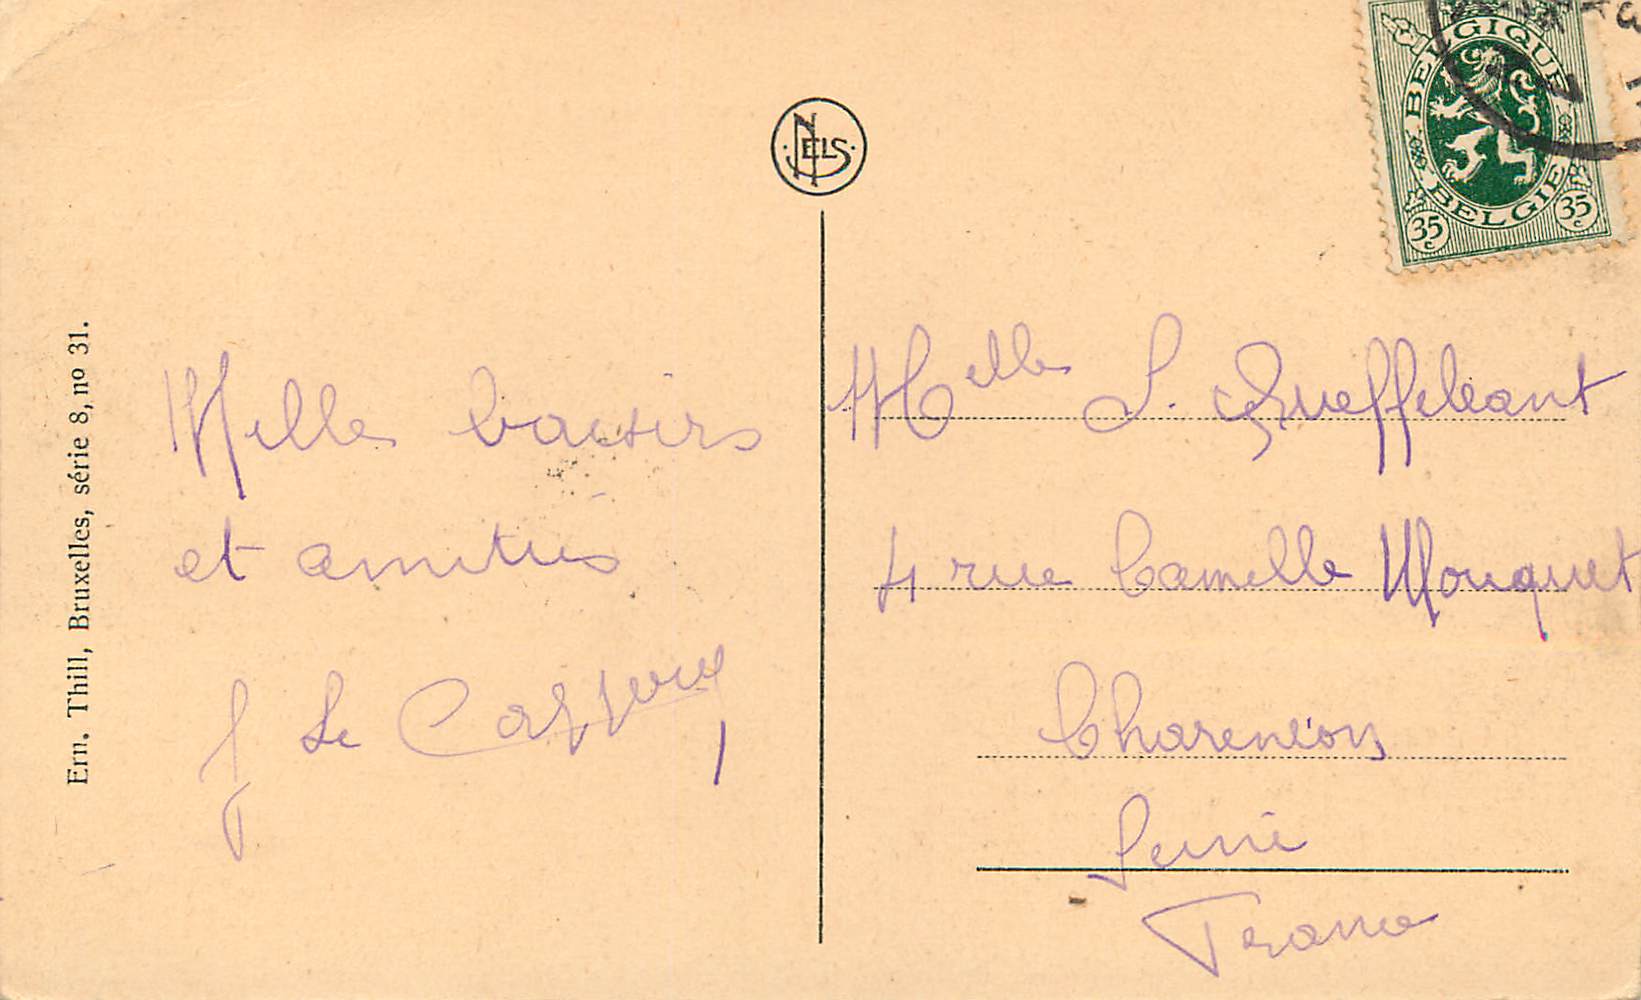 Ern. Thill, Bruxelles, série 8, nº 31.
NELS
BELGIQUE
BELGIE
35 c
35 c
Mille baisirs
et amitiés
J Le
Melle S. Queffeleant
4 rue Camille Mouquet
Charenton
Seine
France